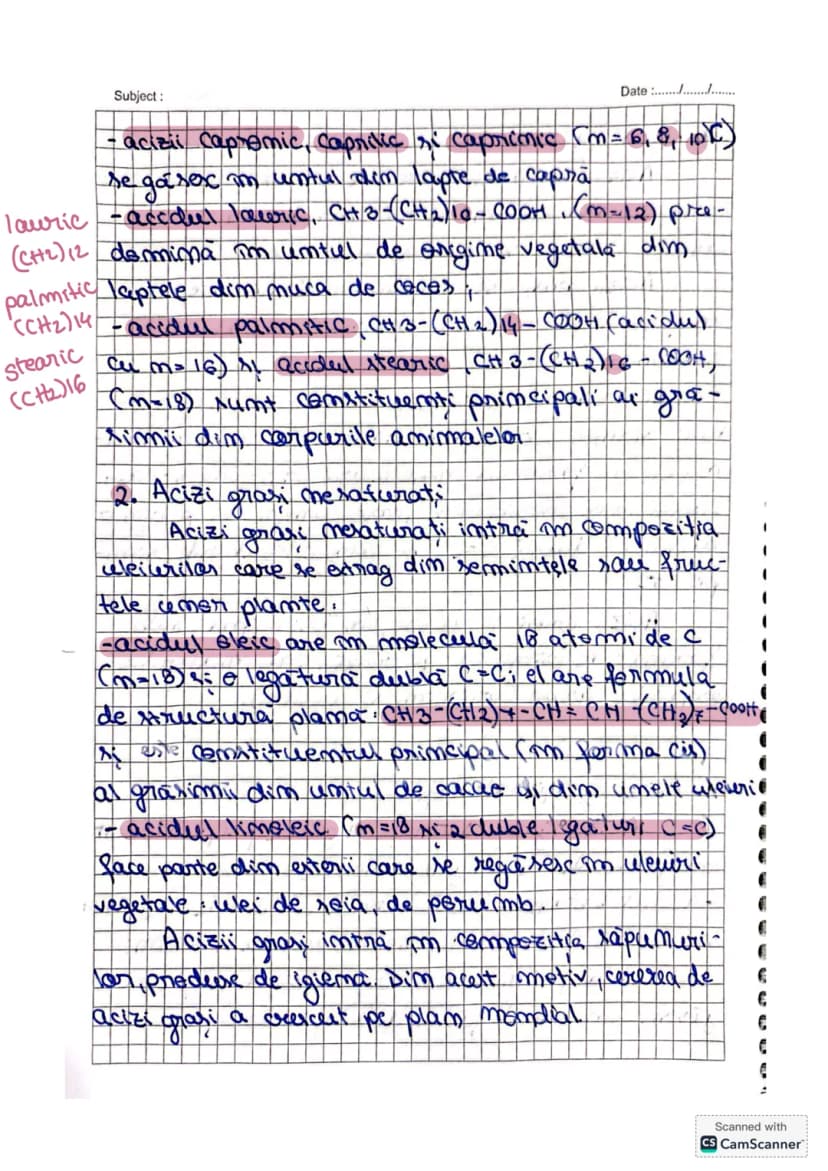 Subject :
Date :....../....../......
- acizii capronic, caprilic și caprinic (n = 6, 8, 10 C)
se găsesc în untul din lapte de capră
- accdul lauric, CH3-(CH2)10-COOH, (n=12) pre-
domină în untul de origine vegetală din
laptele din nuca de cocos;
- acidul palmitic, CH3-(CH2)14-COOH (acidul
cu n= 16) și accdul stearic, CH3-(CH2)16-COOH,
(n=18) sunt constituenți principali ai gră-
simii din corpurile animalelor
lauric
(CH2)12
palmitic
(CH2)14
stearic
(CH2)16
2. Acizi grași nesaturați
Acizi grași nesaturați intră în compoziția
uleiurilor care se extrag din semințele sau fruc-
tele unor plante.
-acidul oleic are în moleculă 18 atomi de C
(n=18) și o legătură dublă C=C; el are formula
de structură plană: CH3-(CH2)7-CH=CH-(CH2)7-COOH
și este constituentul principal (în forma cis)
al grăsimii din untul de cacao și din unele uleiuri
- acidul linoleic (n=18 și 2 duble legături C=C)
face parte din esterii care se regăsesc în uleiuri
vegetale: ulei de soia, de porumb.
Acizii grași intră în compoziția săpunuri-
lor, produse de igienă. Din acest motiv, cererea de
acizi grași a crescut pe plan mondial.
Scanned with
CS CamScanner